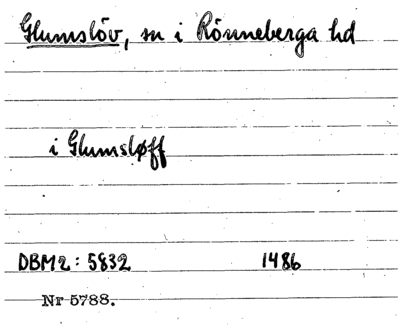 Glumslöv, sn i Rönneberga hd
i Glumsløff
DBM2: 5832 1486
Nr 5788.